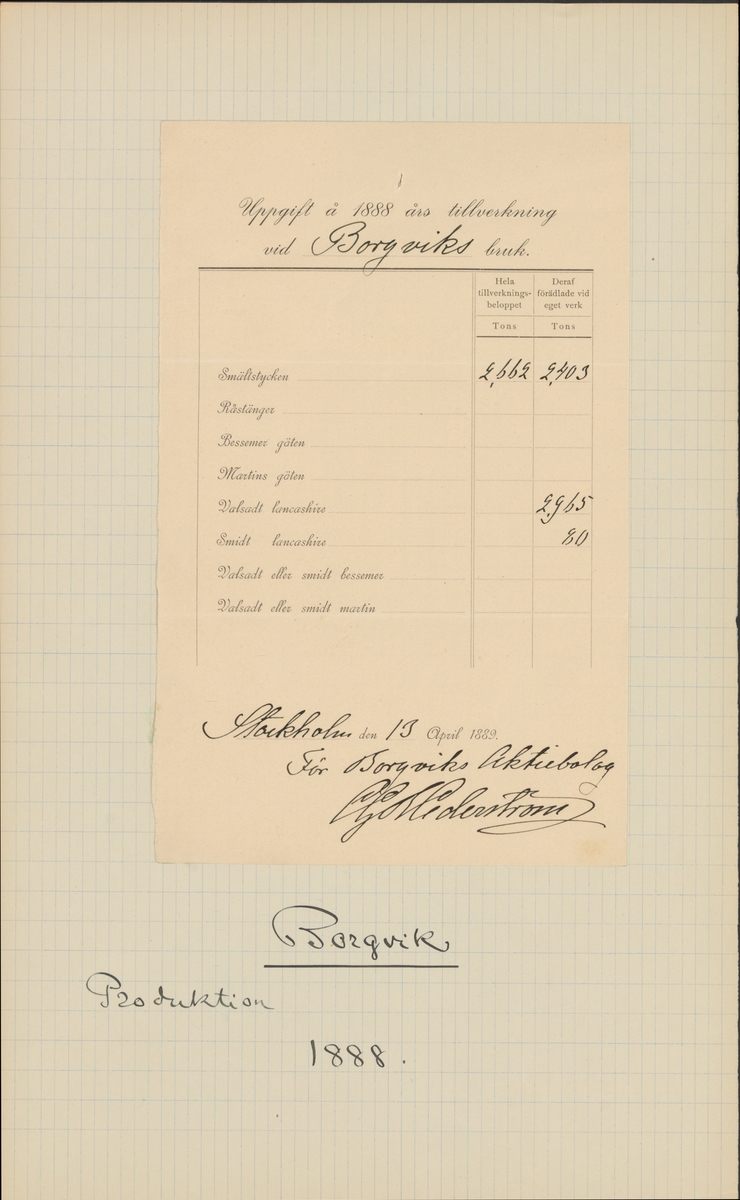 Uppgift å 1888 års tillverkning
vid Borgviks bruk.
Hela tillverknings-beloppet
Deraf förädlade vid eget verk
Tons Tons
Smältstycken 2,662 2,403
Råstänger
Bessemer göten
Martins göten
Valsadt lancashire 2,965
Smidt lancashire 20
Valsadt eller smidt bessemer
Valsadt eller smidt martin
Stockholm den 13 April 1889.
För Borgviks Aktiebolag
Cederström
Borgvik
Produktion
1888.